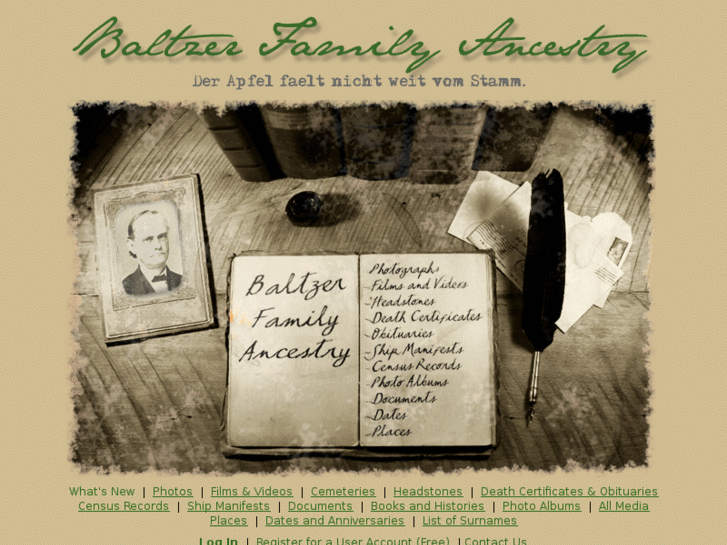 Baltzer Family Ancestry
Der Apfel faellt nicht weit vom Stamm.
Baltzer
Family
Ancestry
Photographs
Films and Videos
Headstones
Death Certificates
Obituaries
Ship Manifests
Census Records
Photo Albums
Documents
Dates
Places
What's New | Photos | Films & Videos | Cemeteries | Headstones | Death Certificates & Obituaries
Census Records | Ship Manifests | Documents | Books and Histories | Photo Albums | All Media
Places | Dates and Anniversaries | List of Surnames
Log In | Register for a User Account (Free) | Contact Us